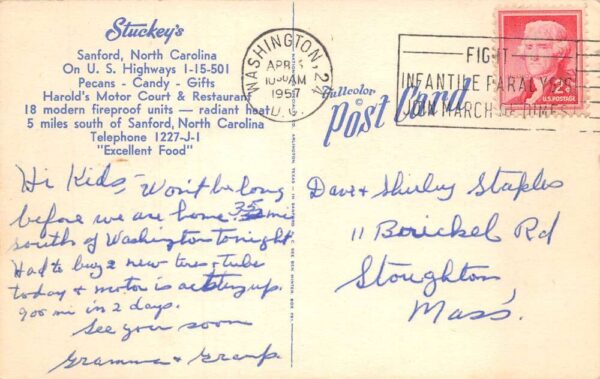 Stuckey's
Sanford, North Carolina
On U. S. Highways 1-15-501
Pecans - Candy - Gifts
Harold's Motor Court & Restaurant
18 modern fireproof units — radiant heat
5 miles south of Sanford, North Carolina
Telephone 1227-J-1
"Excellent Food"
Hi Kids,- Won't be long
before we are home 35 mi
south of Washington tonight
Had to buy a new tire + tube
today & motor is acting up.
900 mi in 2 days.
See you soon
Gramma + Gramp
WASHINGTON, 24
APR
1030AM
1957
D. C.
FIGHT
INFANTILE PARALYSIS
JOIN MARCH OF DIMES
2¢
U.S. POSTAGE
Fullcolor
©
Post Card
Dave & Shirley Staples
11 Rd
Stoughton
Mass.